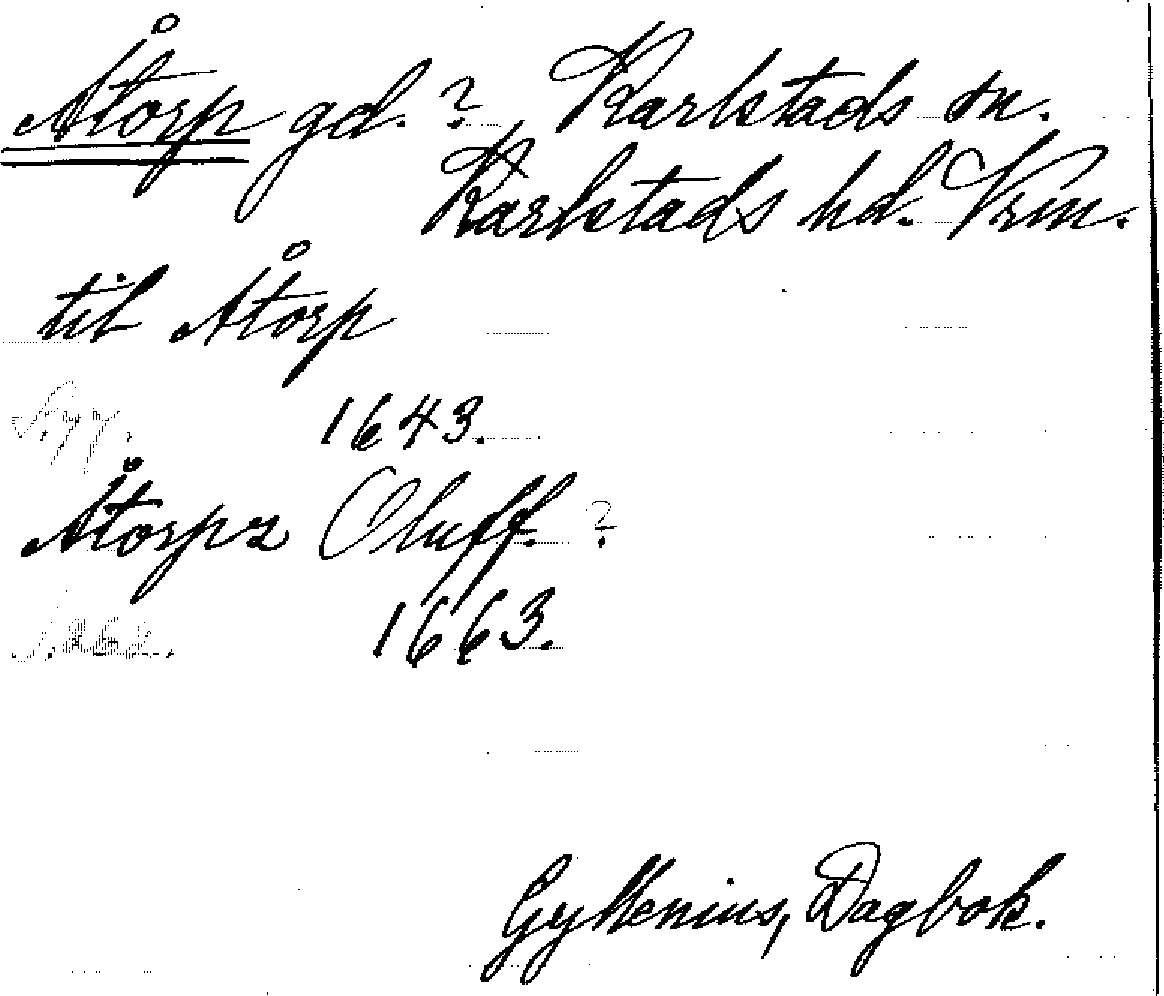 Åtorp gd. ? Karlstads sn.
Karlstads hd. Vrm.
til Åtorp
1643.
Åtorpz Oluff. ?
1663.
Gyllenius, Dagbok.